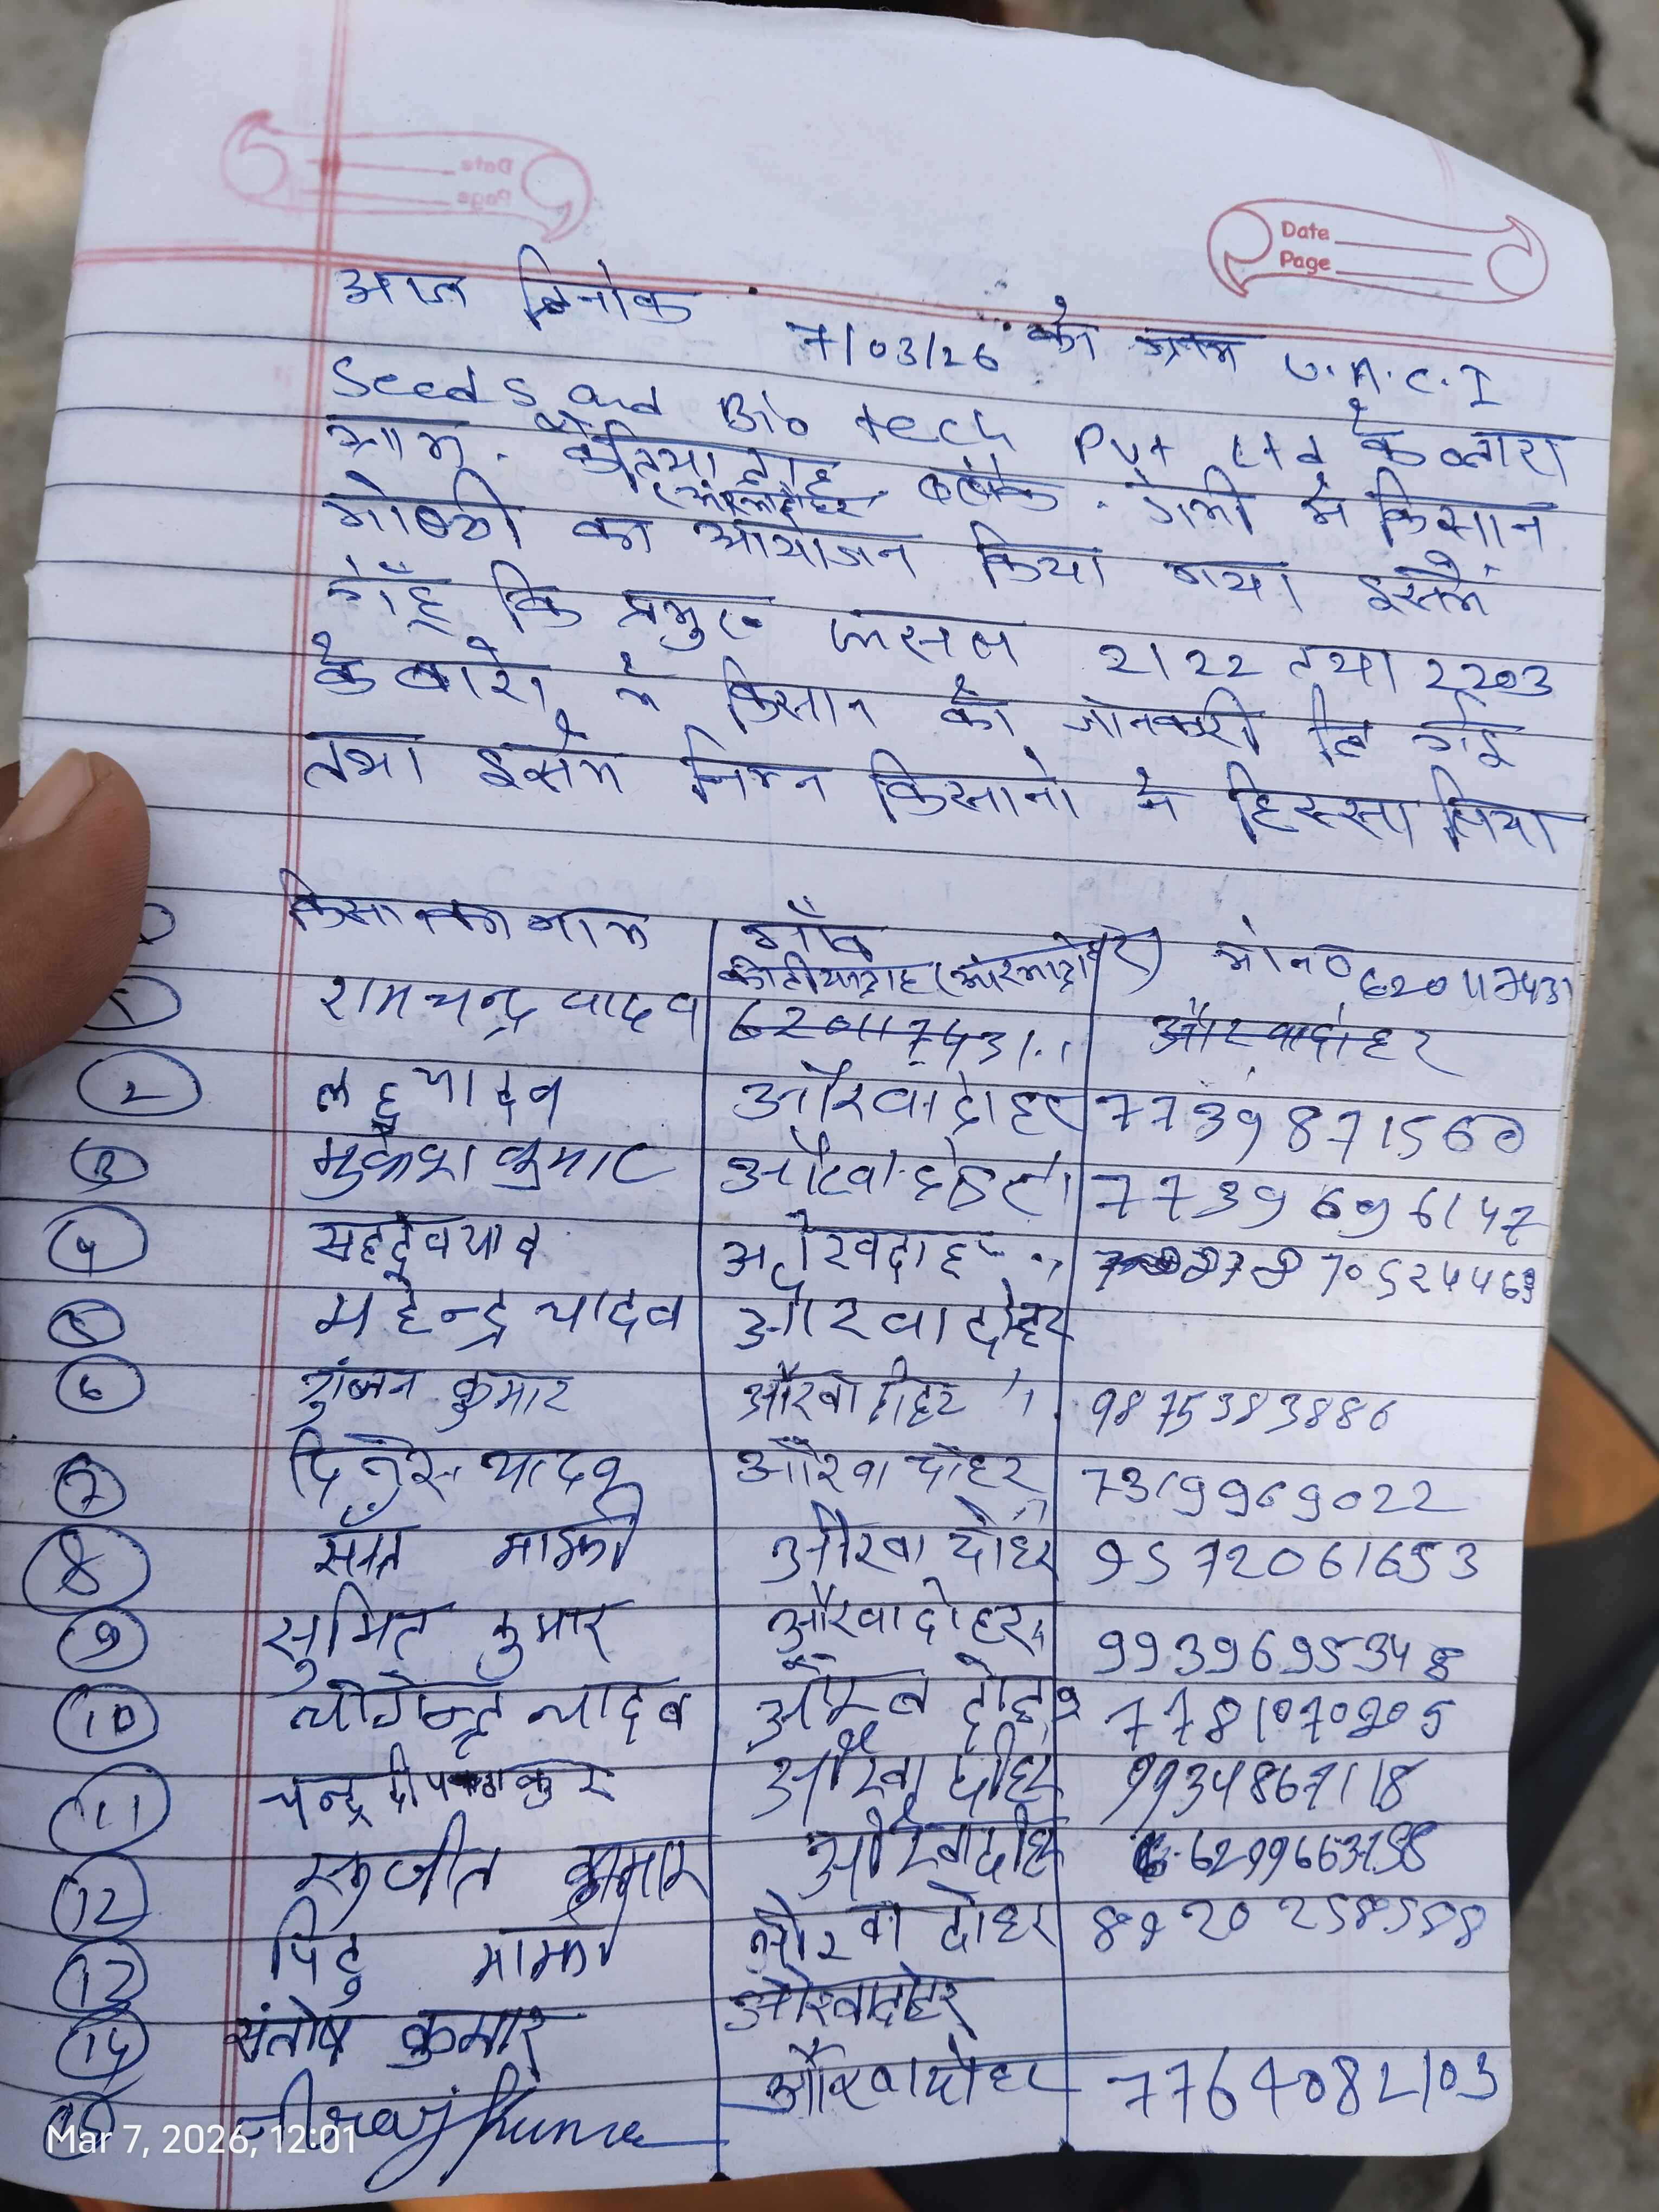 Date
Page
Date
Page
आज दिनांक 7/03/26 को ग्राम U.A.C.I
Seeds and Bio tech Pvt Ltd के द्वारा
ग्राम. ब्लॉक. में किसान
गोष्ठी का आयोजन किया गया इसमें
गेहूँ कि प्रमुख फसल 2122 तथा 2203
के बारे में किसान को जानकारी दि गई
तथा इसमें निम्न किसानो ने हिस्सा लिया
किसान का नाम गाँव मो न०
रामचन्द्र यादव 620117431
620117431 औरवादोहर
2 लड्डु यादव औरवादोहर 7739871560
3 मुकेश कुमार 7739696147
4 सहदेव याव 7052446
5 महेन्द्र यादव औरवादोहर
6 गुंजन कुमार औरवादोहर 9875383886
7 दिनेस यादव औरवा दोहर 7319969022
8 माझी औरवा दोहर 9572061653
9 सुमित कुमार औरवादोहर 9939695348
10 योगेन्द्र यादव औरव दोहर 7781070905
11 चन्द्रदीप ठाकुर औरवा दोहर 9934867118
12 सुजीत कुमार औरवादोहर 6299663798
13 पिंटु माझी औरवा दोहर 8920258588
14 संतोष कुमार औरवादोहर
15 Niraj Kumar औरवादोहर 7764082103
Mar 7, 2026, 12:01